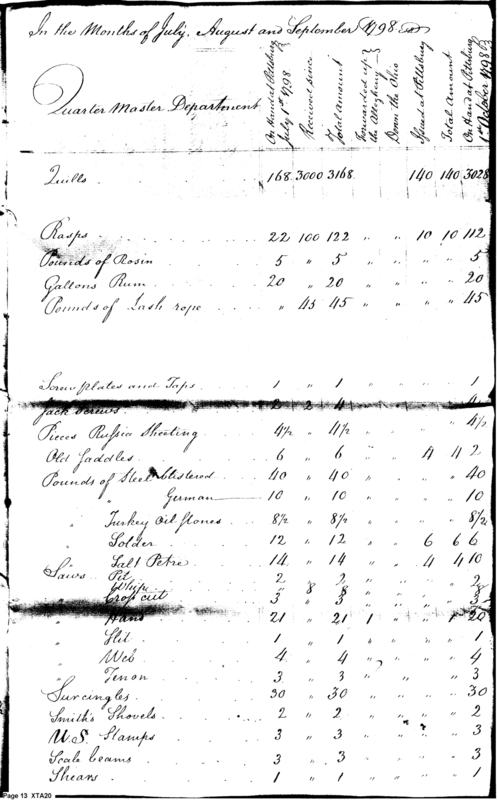 In the Months of July, August and September 1798
Quarter Master Department
On Hand at Pittsburg July 1st 1798
Received since
Total amount
Forwarded up the Allegheny
Down the Ohio
Spend at Pittsburg
Total Amount
On Hand at Pittsburg 1st October 1798
Quills 168 3000 3168 140 140 3028
Rasps 22 100 122 " " 10 10 112
Pounds of Rosin 5 " 5 " " " " 5
Gallons Rum 20 " 20 " " " " 20
Pounds of Lash rope " 45 45 " " " " 45
Screw plates and Taps 1 " 1 " " " " 1
Jack Screws 2 2 4 4
Pieces Russia Sheeting 4½ " 4½ " " " " 4½
Old Saddles 6 " 6 " " 4 4 2
Pounds of Steel blistered 40 " 40 " " " " 40
" German 10 " 10 " " " " 10
" Turkey Oil Stones 8½ " 8½ " " " " 8½
" Solder 12 " 12 " " 6 6 6
" Salt Petre 14 " 14 " " 4 4 10
Saws Pit 2 " 2 " " " " 2
" Whip " 8 8
" Crop cut 3 " 3 " " " " 3
" Hand 21 " 21 1 " " 1 20
" Slit 1 " 1 " " " " 1
" Web 4 " 4 " " " " 4
" Tenon 3 " 3 " " " " 3
Surcingles 30 " 30 " " " " 30
Smith's Shovels 2 " 2 " " " " 2
U.S. Stamps 3 " 3 " " " " 3
Scale beams 3 " 3 " " " " 3
Shears 1 " 1 " " " " 1
Page 13 XTA20